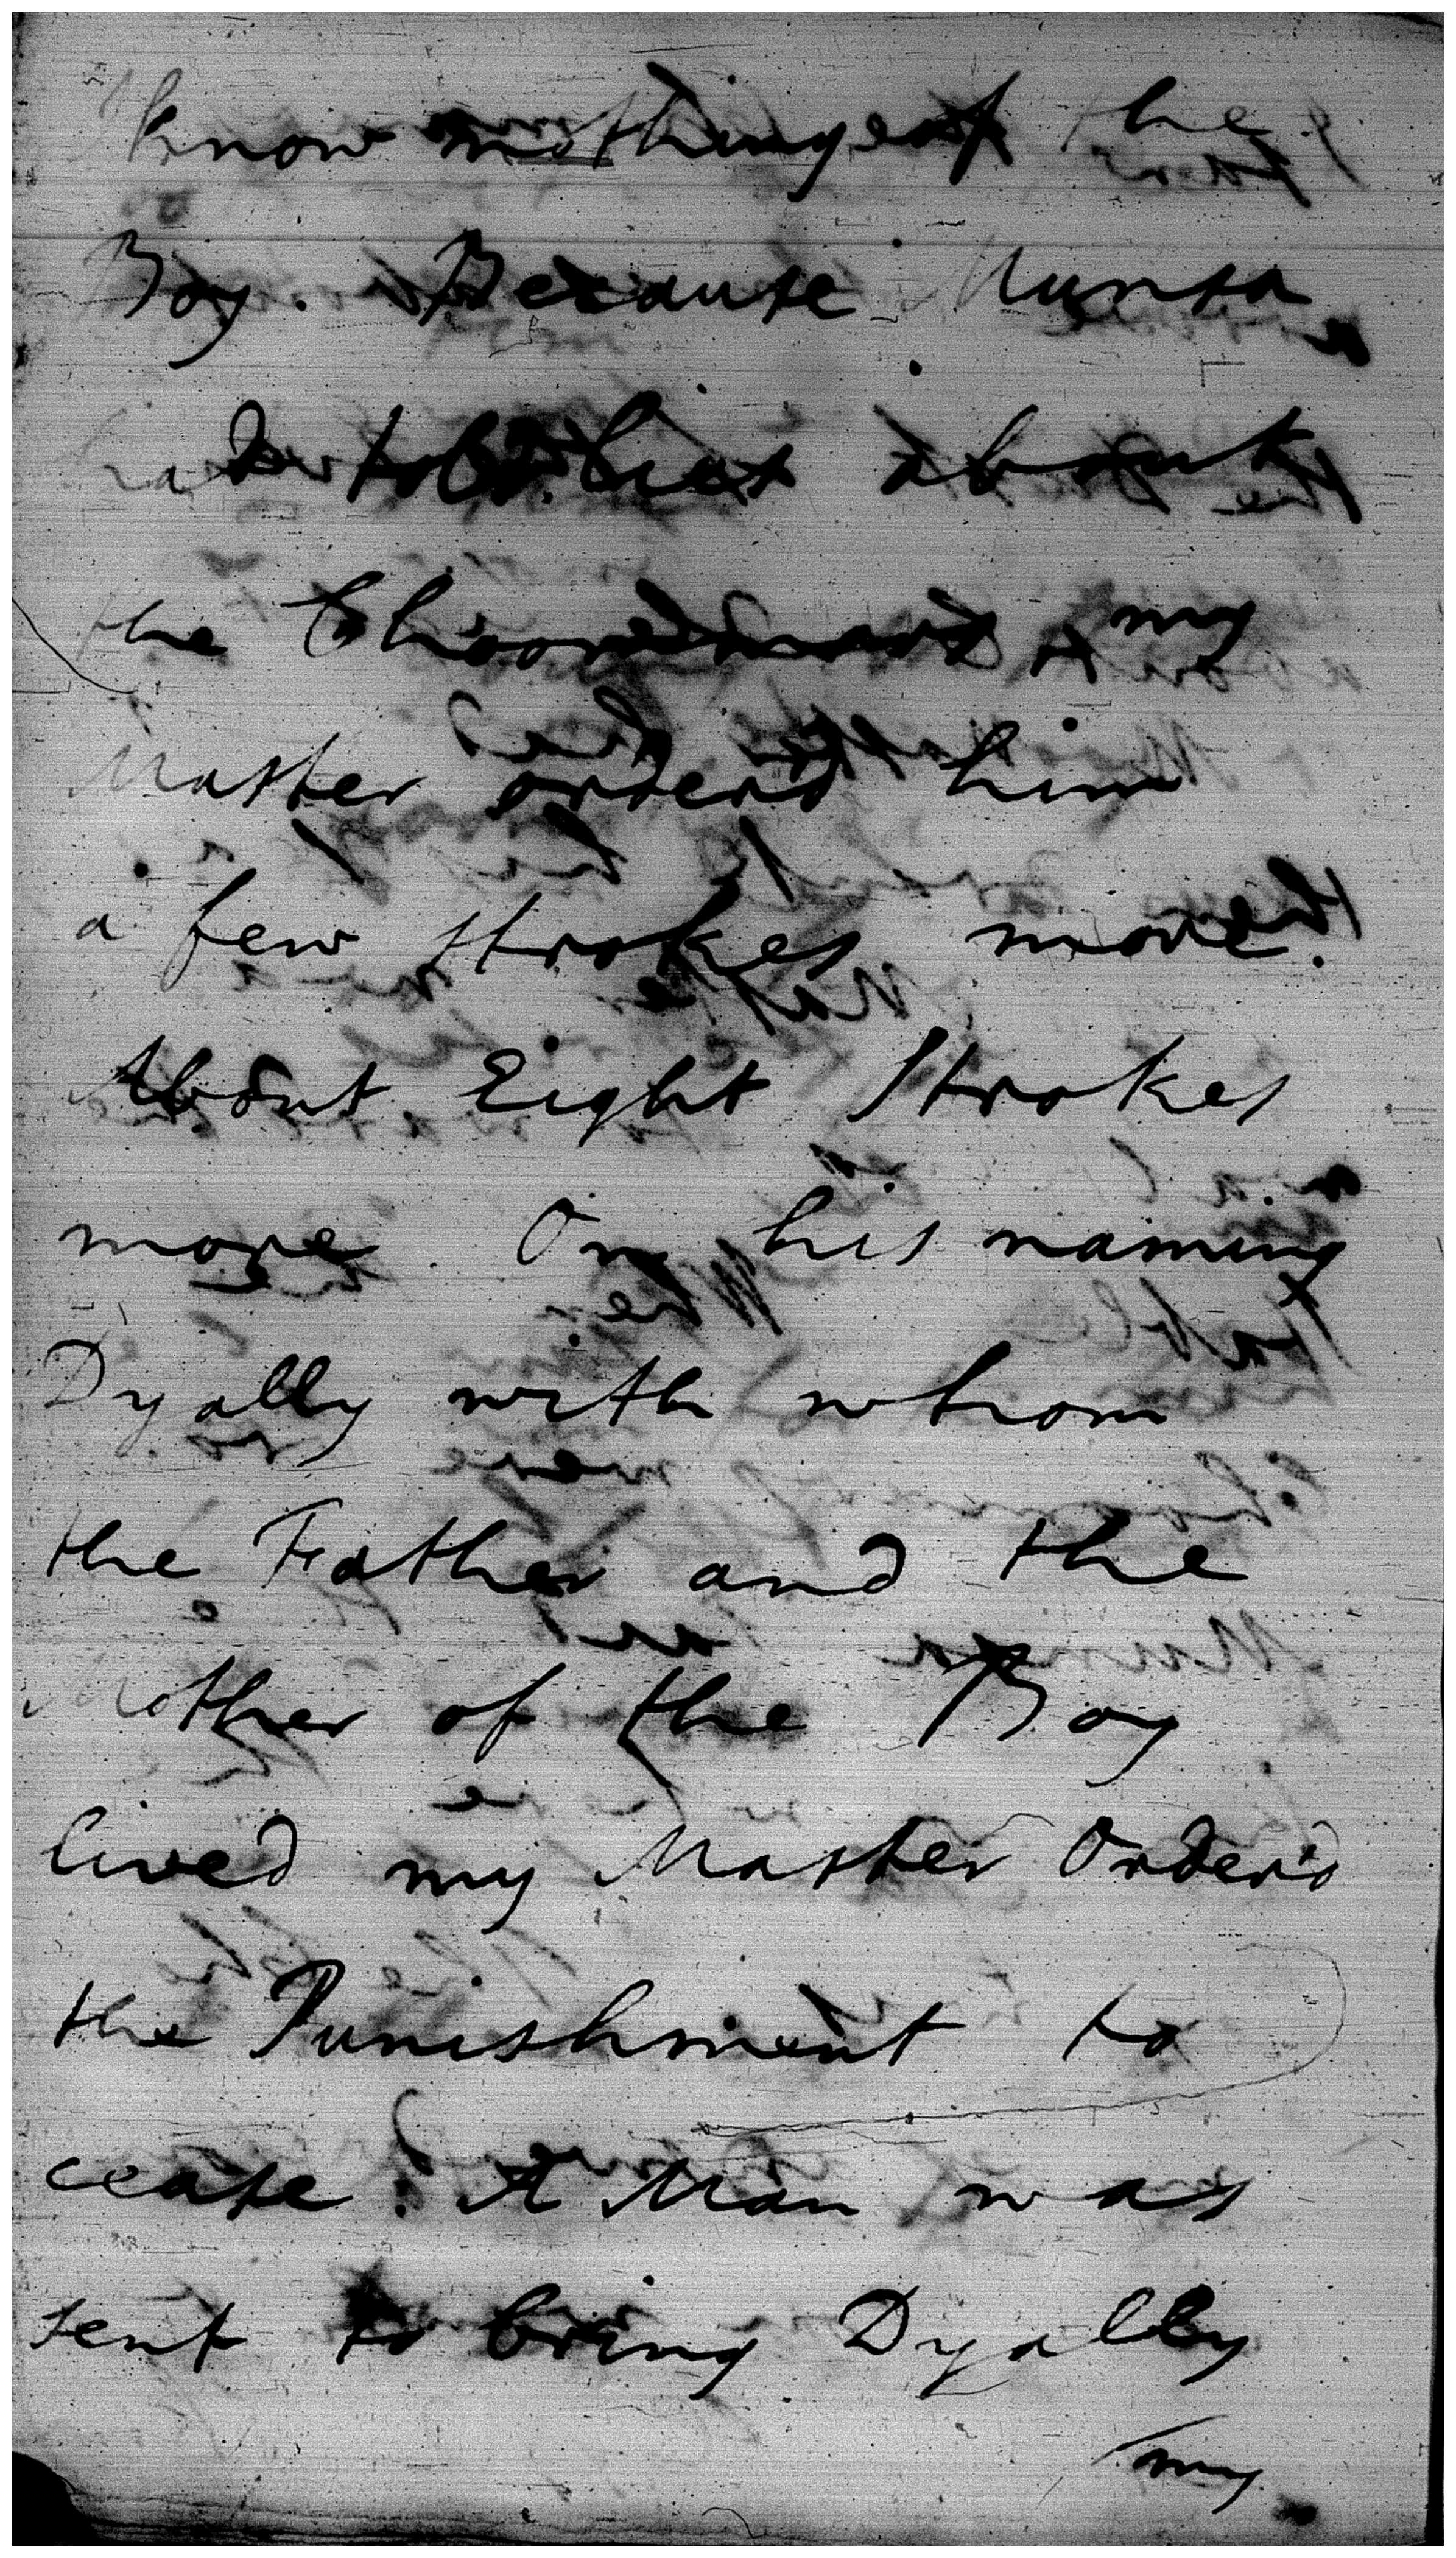 know nothing of the
Boy. Because Nunsa
had told lies about
the my
Master orderd him
a few Strokes more.
About Eight Strokes
more. On his naming
Dyally with whom
the Father and the
Mother of the Boy
lived my Master Orderd
the Punishment to
cease. A Man was
sent to bring Dyally
my